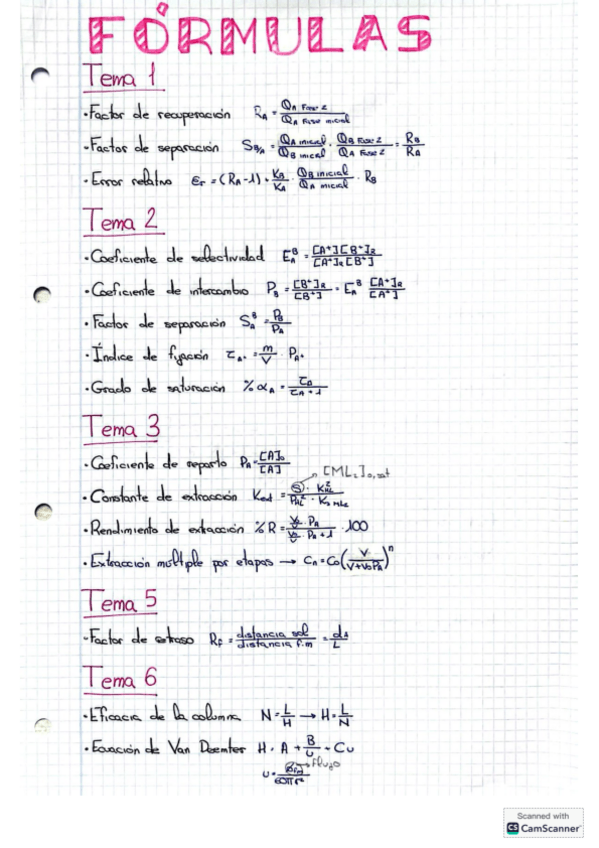 FÓRMULAS
Tema 1
·Factor de recuperación R_A = Q_A Fase 2 / Q_A Fase inicial
·Factor de separación S_B/A = Q_A inicial / Q_B inicial · Q_B Fase 2 / Q_A Fase 2 = R_B / R_A
·Error relativo ε_r = (R_A - 1) + K_B / K_A · Q_B inicial / Q_A inicial · R_B
Tema 2
·Coeficiente de selectividad E_A^B = [A⁺][B⁺]_R / [A⁺]_R[B⁺]
·Coeficiente de intercambio P_B = [B⁺]_R / [B⁺] = E_A^B [A⁺]_R / [A⁺]
·Factor de separación S_A^B = P_B / P_A
·Índice de fijación τ_A⁺ = m / V · P_A⁺
·Grado de saturación % α_A = τ_A + 1
Tema 3
·Coeficiente de reparto P_A = [A]_o / [A]
[ML₂]_o,
·Constante de extracción K_ext =
·Rendimiento de extracción % R = V_o / V · P_A / V_o / V · P_A + 1 · 100
·Extracción múltiple por etapas → C_n = C_o (V / V + V_o P_A)^n
Tema 5
·Factor de retraso R_f = distancia sol / distancia f.m = d_s / L
Tema 6
·Eficacia de la columna N = L / H → H = L / N
·Ecuación de Van Deemter H = A + B / U + CU
Flujo
U = / 60πr²
Scanned with
CS CamScanner